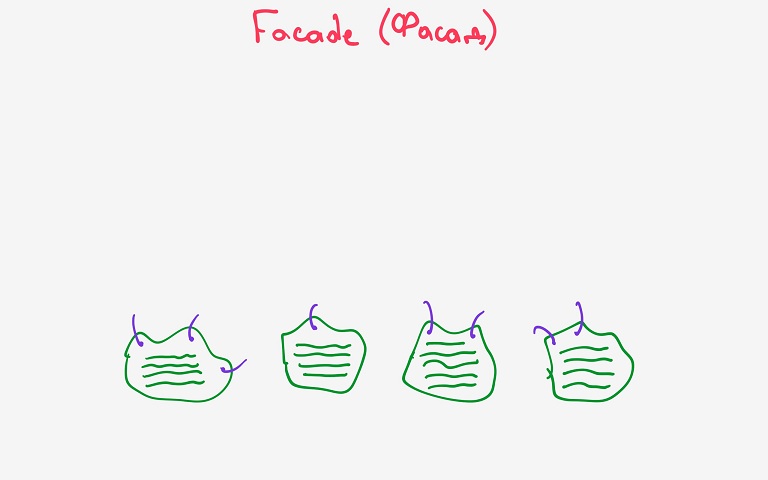 Facade (Фасад)